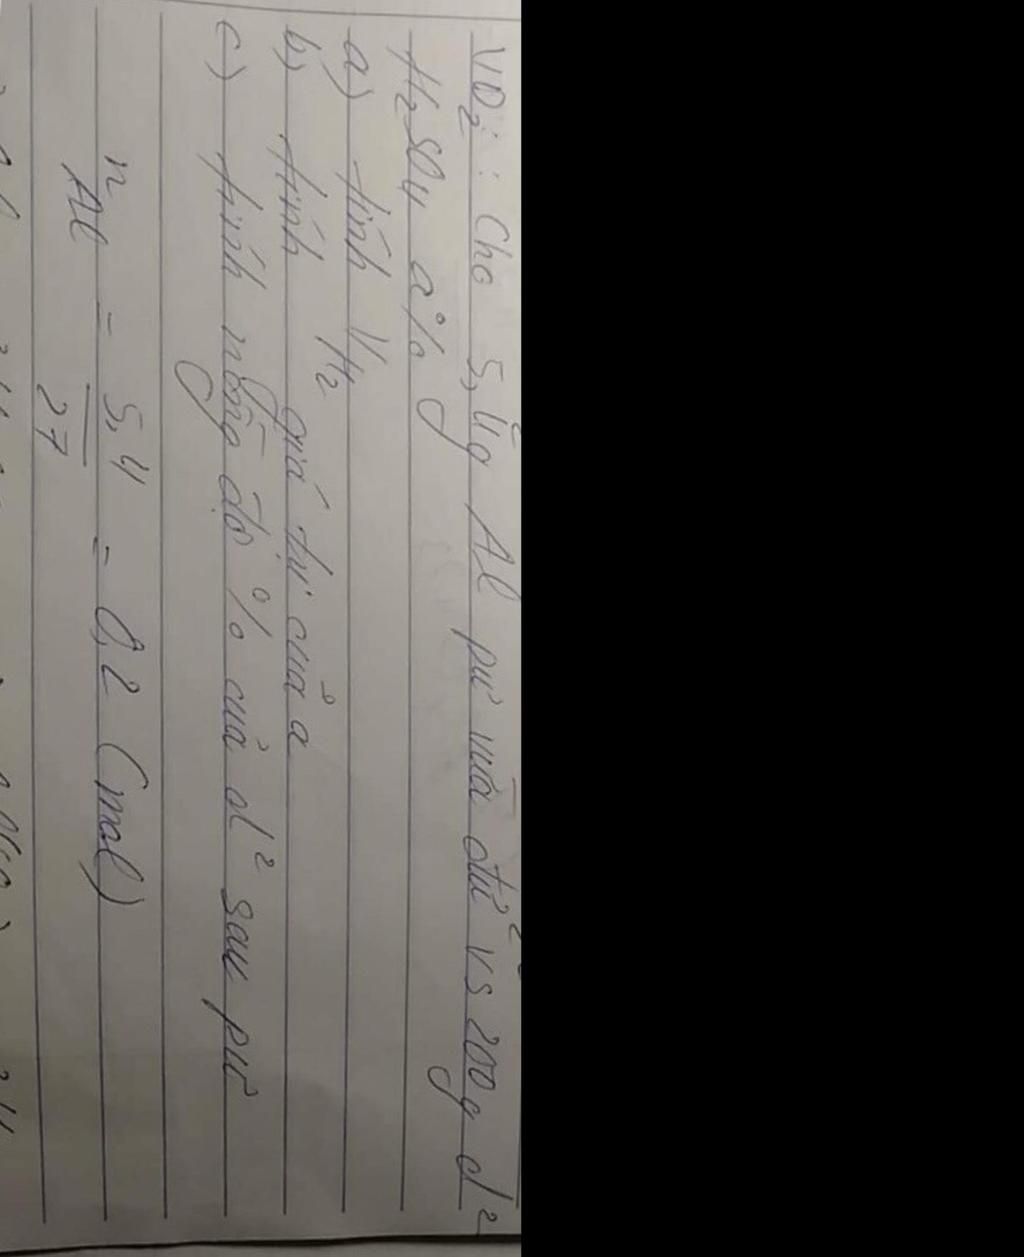 VD2: Cho 5,4g Al pư vừa đủ vs 200g d²
H2SO4 a%
a) tính VH2
b) tính giá trị của a
c) tính nồng độ % của d² sau pư
nAl = 5,4/27 = 0,2 (mol)